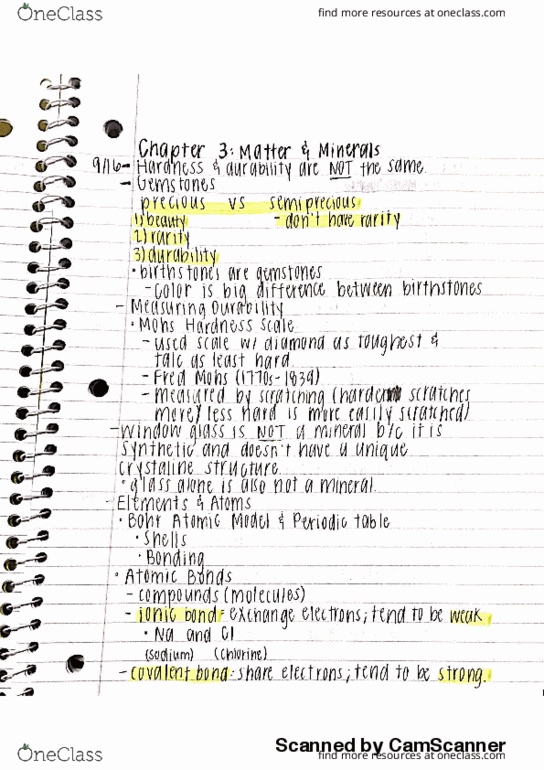 OneClass
find more resources at oneclass.com
Chapter 3: Matter & Minerals
9/16 - Hardness & durability are NOT the same.
- Gemstones
precious vs semiprecious
1) beauty - don't have rarity
2) rarity
3) durability
• birthstones are gemstones
- Color is big difference between birthstones
- Measuring Durability
• Mohs Hardness Scale
- used scale w/ diamond as toughest &
talc as least hard
- Fred Mohs (1770s-1839)
- measured by scratching (harder scratches
more/less hard is more easily scratched)
- Window glass is NOT a mineral b/c it is
synthetic and doesn't have a unique
crystaline structure.
• glass alone is also not a mineral.
- Elements & Atoms
• Bohr Atomic Model & Periodic table
• Shells
• Bonding
• Atomic Bonds
- compounds (molecules)
- ionic bond: exchange electrons; tend to be weak.
• Na and Cl
(sodium) (chlorine)
- covalent bond: share electrons; tend to be strong.
Scanned by CamScanner
OneClass
find more resources at oneclass.com